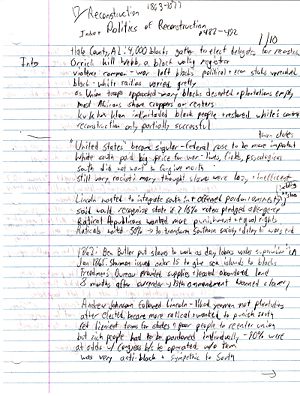 Reconstruction 1863-1877
Politics of Reconstruction
p 482-492
1/10
Intro
Hale County, AL: 4,000 blacks gather to elect delegates for
Orrick Hill Webb, a black voting register
violence common - war left blacks political + econ stake
black-white ratios varied greatly
as Union troops approached many blacks deserted plantations empty
most Africans share croppers or renters
ku klux klan intimidated black people resolved while
reconstruction only partially successful
than states
"United States" became singular - federal rose to be more important
White south paid big price for war - lives, fields, psychological
South did not want to forgive north
still very racist: many thought slaves were lazy, inefficient
Lincoln wanted to integrate south + offered pardon
said would recognize state if 10% voters pledged allegiance
Radical Republicans wanted more punishment + equal rights
Radicals wanted 50% to transform Southern society + delay
1862: Ben Butler put slaves to work as day labors under supervision LA
Jan 1865: Sherman issued order 15 to give sea islands to blacks
Freedmen's Bureau provided supplies + leased abandoned land
8 months after surrender, 13th amendment banned slavery
Andrew Johnson followed Lincoln - liked yeomen not plantations
after elected, became more radical wanted to punish south
set lienient terms for states + poor people to reenter union
but rich people had to be pardoned individually - 90% were
at odds w/ Congress b/c he operated w/o them
was very anti-black + sympathetic to South